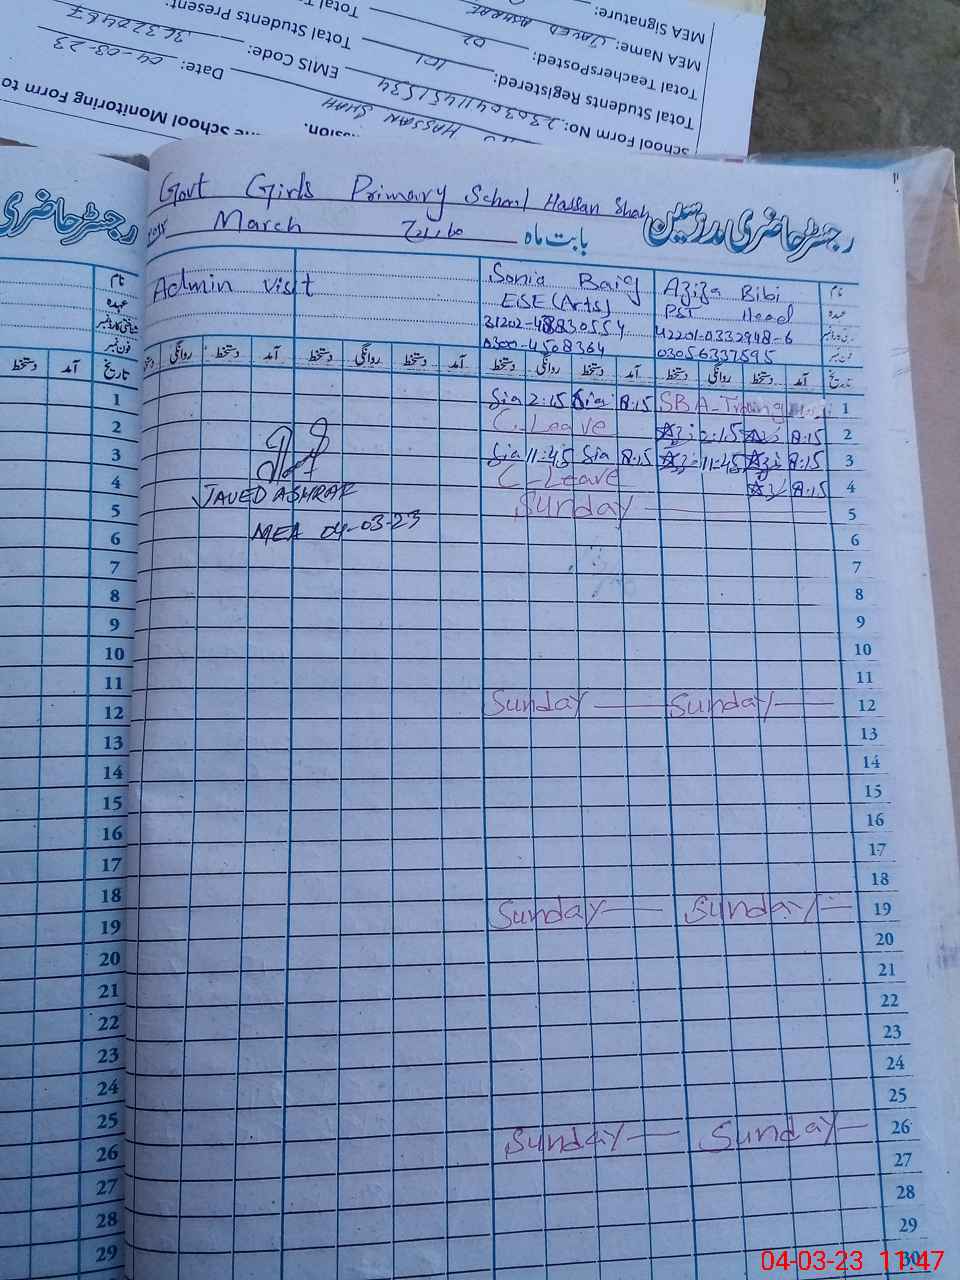 MEA Signature:
MEA Name: JAVED ASHRAF
Total TeachersPosted: 02
Total Students Registered: 101
Total Students Present:
School Form No: 230304114511534
EMIS Code:
HASSAN SHAH
Date: 04-03-23
School Monitoring Form to
Govt Girls Primary School Hassan Shah
رجسٹر حاضری مدرسین
رجسٹر حاضری
March
بابت ماہ
Admin visit
Sonia Baig
Aziza Bibi
نام
نام
ESE (Arts)
PST Head
عہدہ
عہدہ
42201-0332948-6
0300-4508364
03056337595
فون نمبر
فون نمبر
دستخط آمد تاریخ
دستخط روانگی دستخط آمد دستخط روانگی دستخط آمد دستخط روانگی دستخط آمد دستخط روانگی دستخط آمد تاریخ
1 Sia 2:15 Sia 8:15 SBA-Training 1
2 C-Leave 2:15 8:15 2
3 Sia 11:45 Sia 8:15 11:45 8:15 3
4 C-Leave 8:15 4
JAVED ASHRAF
5 Sunday 5
MEA 04-03-23
6 6
7 7
8 8
9 9
10 10
11 11
12 Sunday Sunday 12
13 13
14 14
15 15
16 16
17 17
18 18
19 Sunday Sunday 19
20 20
21 21
22 22
23 23
24 24
25 25
26 Sunday Sunday 26
27 27
28 28
29 29
30
04-03-23 11:47